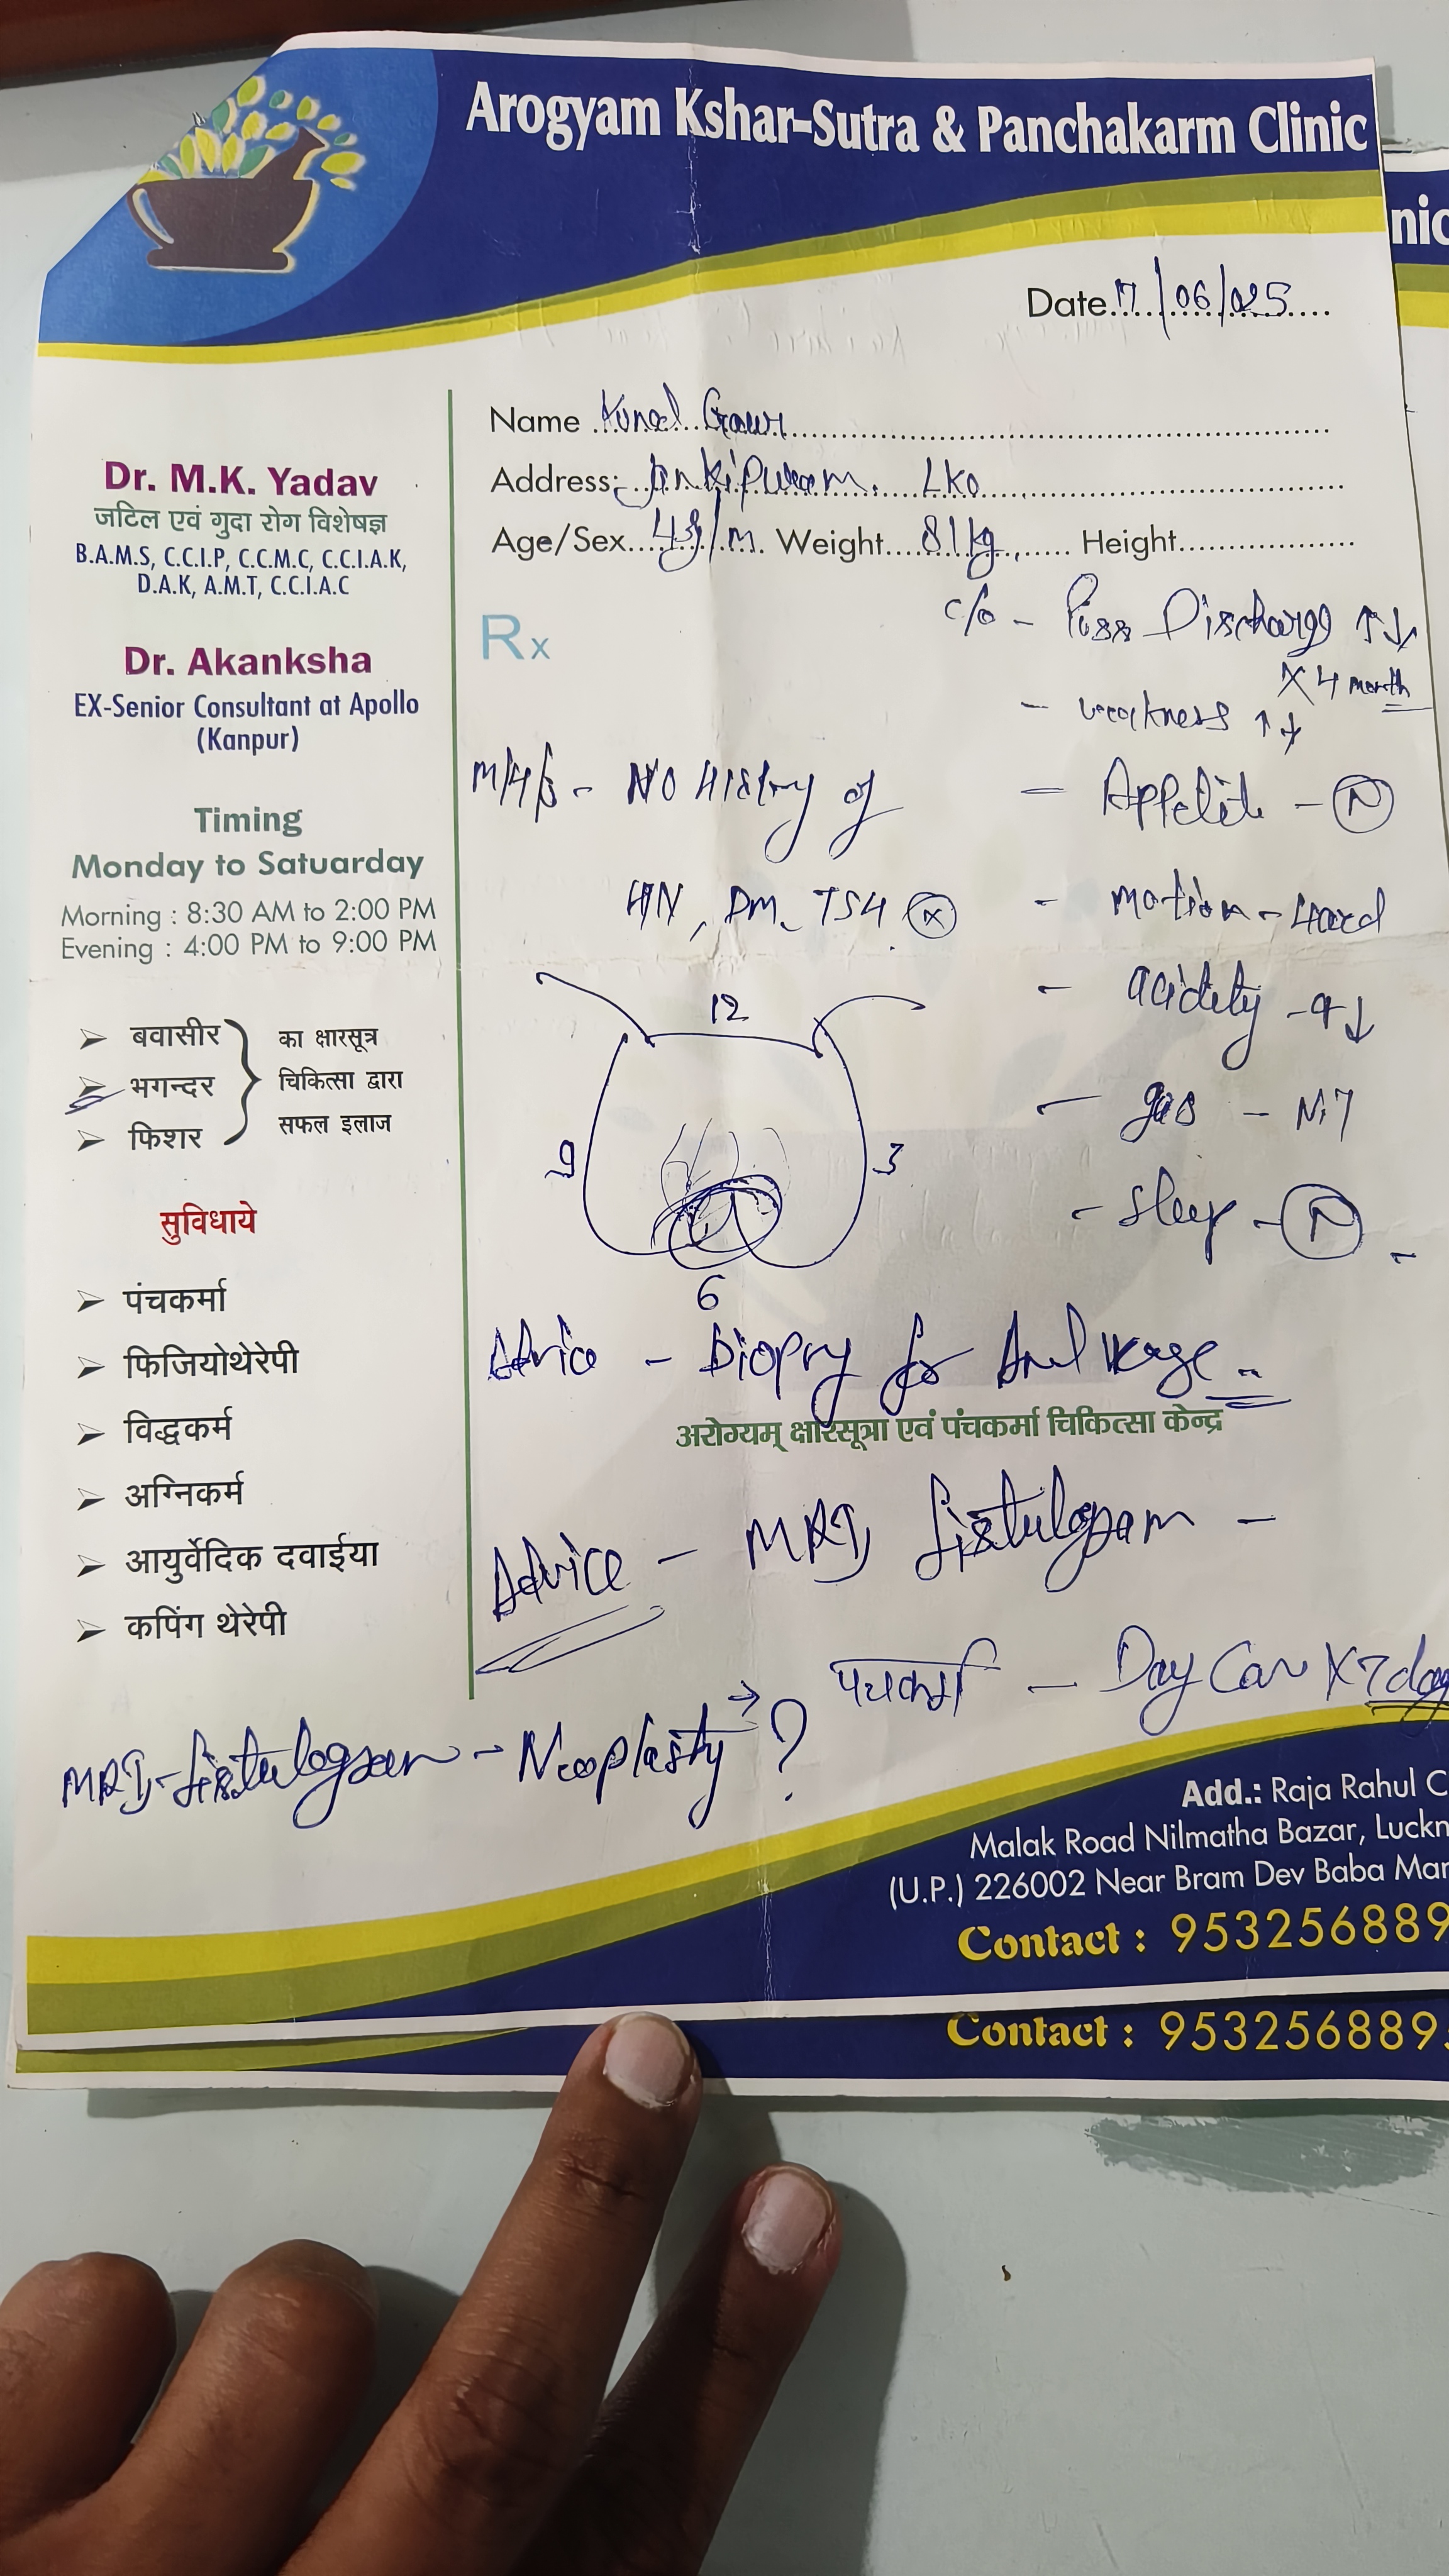 Arogyam Kshar-Sutra & Panchakarm Clinic
nic
Date 17/06/025
Name Kunal Gaur
Address: Jankipuram. LKO
Age/Sex 43/m Weight 81kg Height
Dr. M.K. Yadav
जटिल एवं गुदा रोग विशेषज्ञ
B.A.M.S, C.C.I.P, C.C.M.C, C.C.I.A.K,
D.A.K, A.M.T, C.C.I.A.C
Dr. Akanksha
EX-Senior Consultant at Apollo
(Kanpur)
Timing
Monday to Satuarday
Morning : 8:30 AM to 2:00 PM
Evening : 4:00 PM to 9:00 PM
➢ बवासीर
➢ भगन्दर
➢ फिशर
का क्षारसूत्र
चिकित्सा द्वारा
सफल इलाज
सुविधाये
➢ पंचकर्मा
➢ फिजियोथेरेपी
➢ विद्धकर्म
➢ अग्निकर्म
➢ आयुर्वेदिक दवाईया
➢ कपिंग थेरेपी
Rx
c/o - Puss Discharge ↑↓
X 4 month
- weakness ↑↓
- Appetit - (N)
- motion - Hard
- acidity - ↑↓
- gas - Nil
- sleep - (N)
M/H/s - NO History of
HN, Dm, TSH (x)
12
9 3
6
Advice - Biopsy for Anal verge
अरोग्यम् क्षारसूत्रा एवं पंचकर्मा चिकित्सा केन्द्र
Advice - MRI fistulogram -
पंचकर्मा - Day Care X 7 day
MRI-fistulogram - Neoplasty → ?
Add.: Raja Rahul C
Malak Road Nilmatha Bazar, Luckn
(U.P.) 226002 Near Bram Dev Baba Man
Contact : 953256889
Contact : 953256889